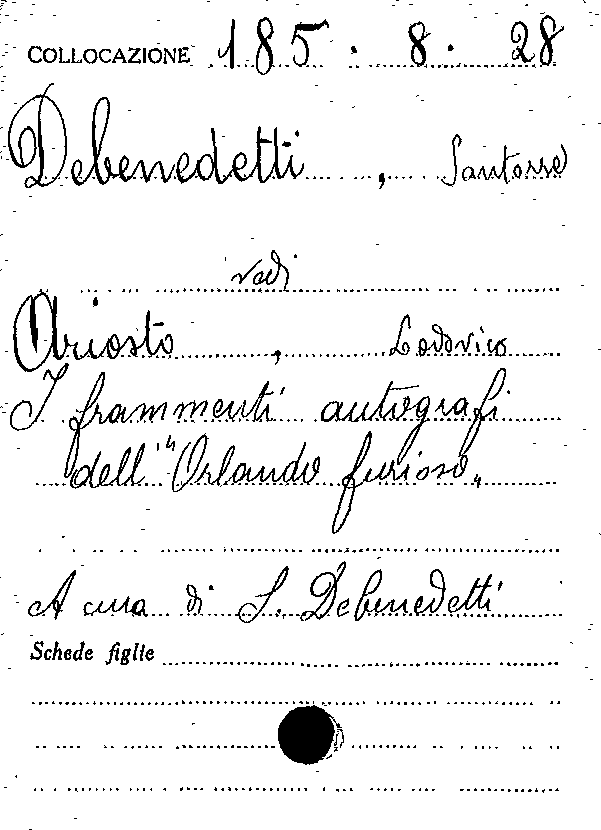 COLLOCAZIONE 185. 8. 28
Debenedetti, Santorre
vedi
Ariosto, Lodovico
I frammenti autografi
dell'"Orlando furioso„
A cura di S. Debenedetti
Schede figlie